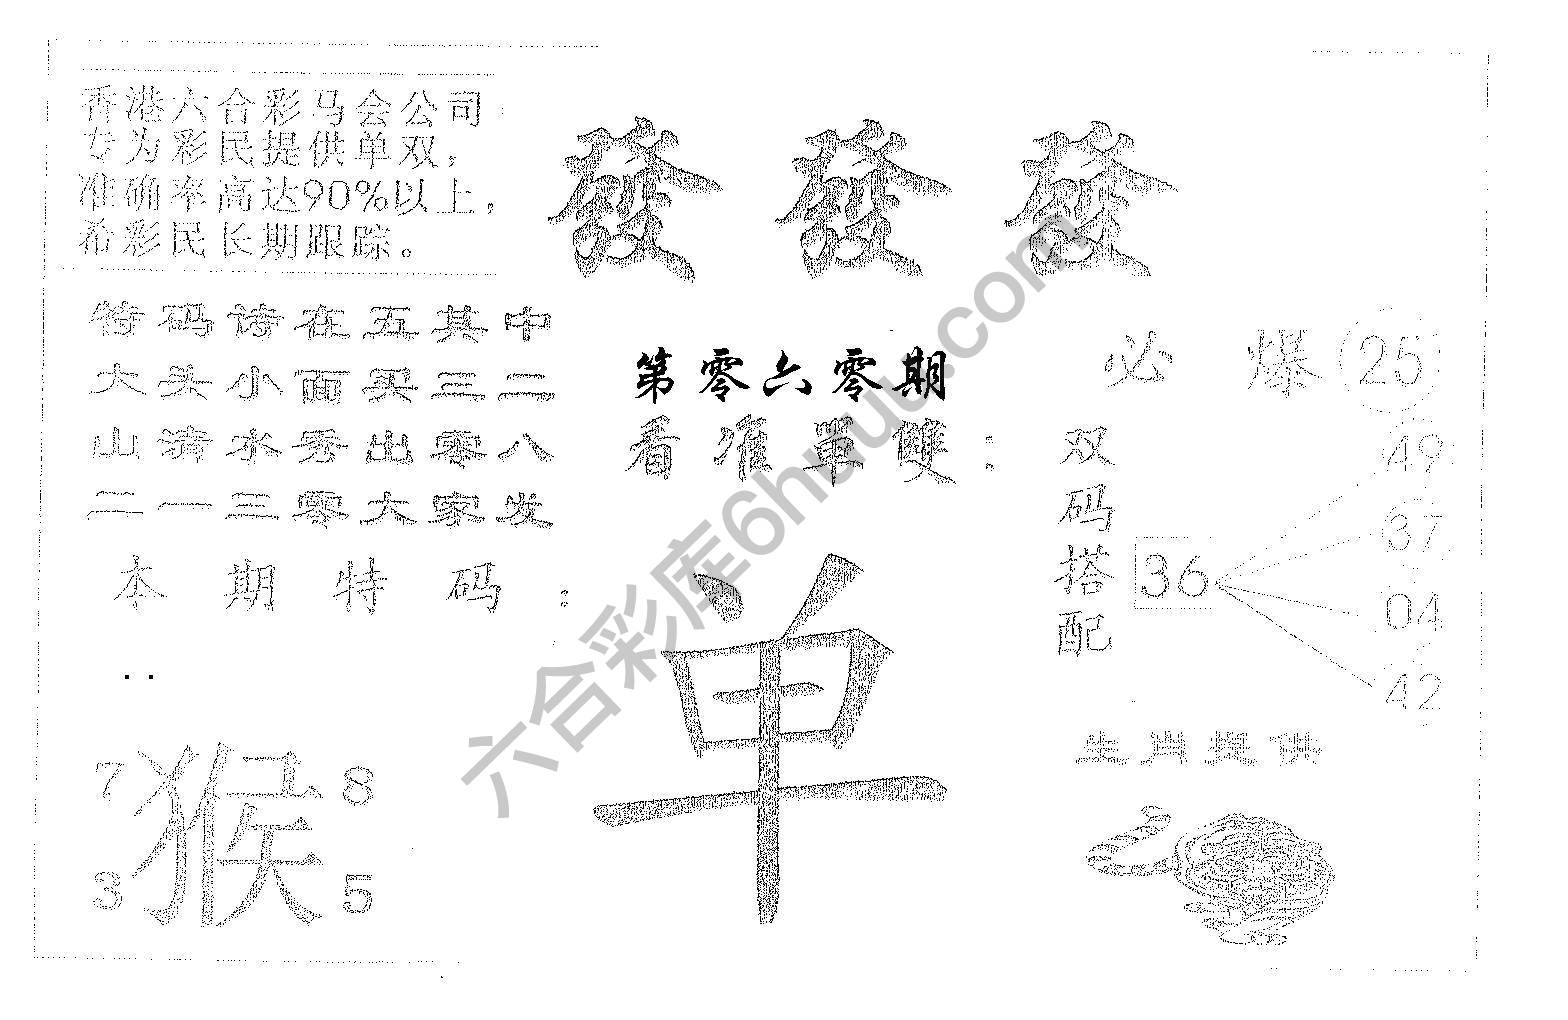 香港六合彩马会公司
专为彩民提供单双，
准确率高达90%以上，
希彩民长期跟踪。
發發發
特码诗在五其中
大头小面买三二
山清水秀出零八
二一三零大家发
本期特码：
第零六零期
看准單雙：
单
必爆25
双码搭配
36
49
37
04
42
7猴8
3 5
生肖提供
六合彩库6huu.com